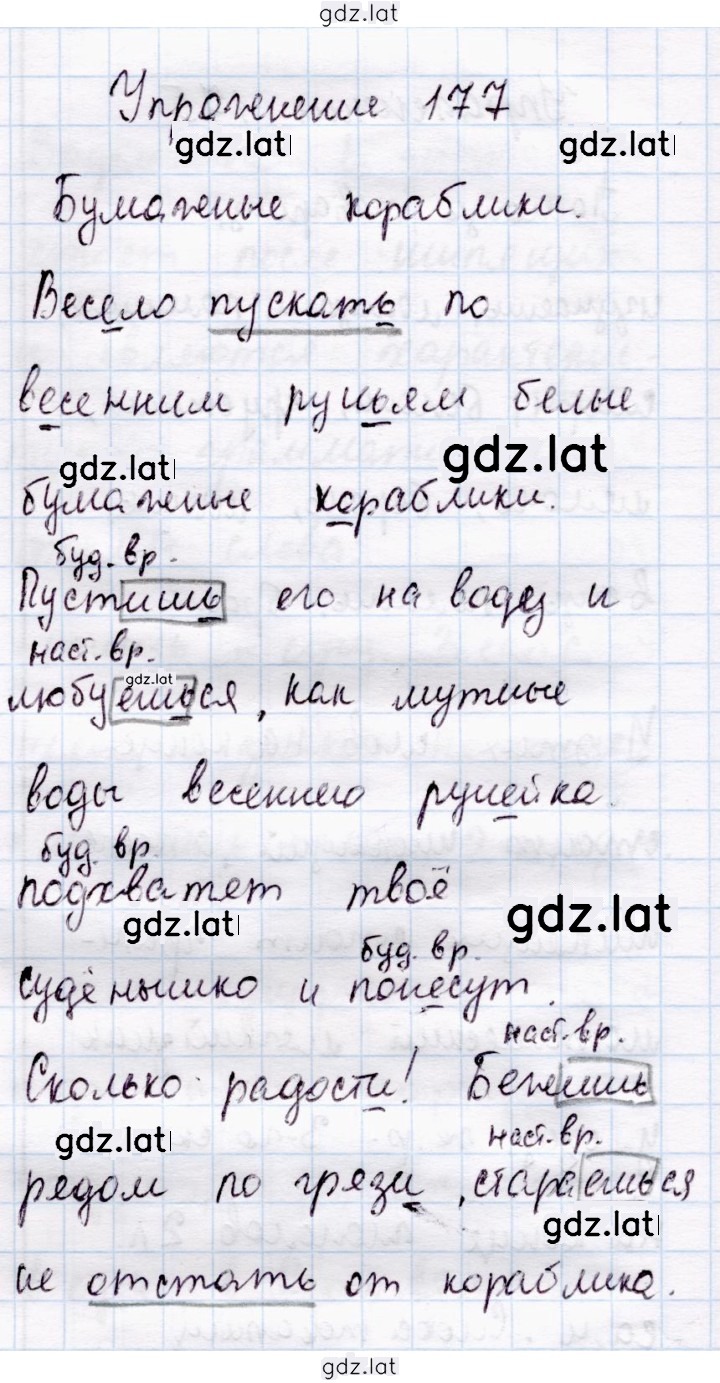 gdz.lat
Упражнение 177
gdz.lat gdz.lat
Бумажные кораблики.
Весело пускать по
весенним ручьям белые
gdz.lat gdz.lat
бумажные кораблики.
буд. вр.
Пустишь его на воду и
наст. вр.
gdz.lat
любуешься, как мутные
воды весеннего ручейка
буд. вр.
подхватят твоё
gdz.lat gdz.lat
буд. вр.
судёнышко и понесут.
наст. вр.
Сколько радости! Бежишь
gdz.lat наст. вр.
рядом по грязи, стараешься
gdz.lat
не отстать от кораблика.
gdz.lat